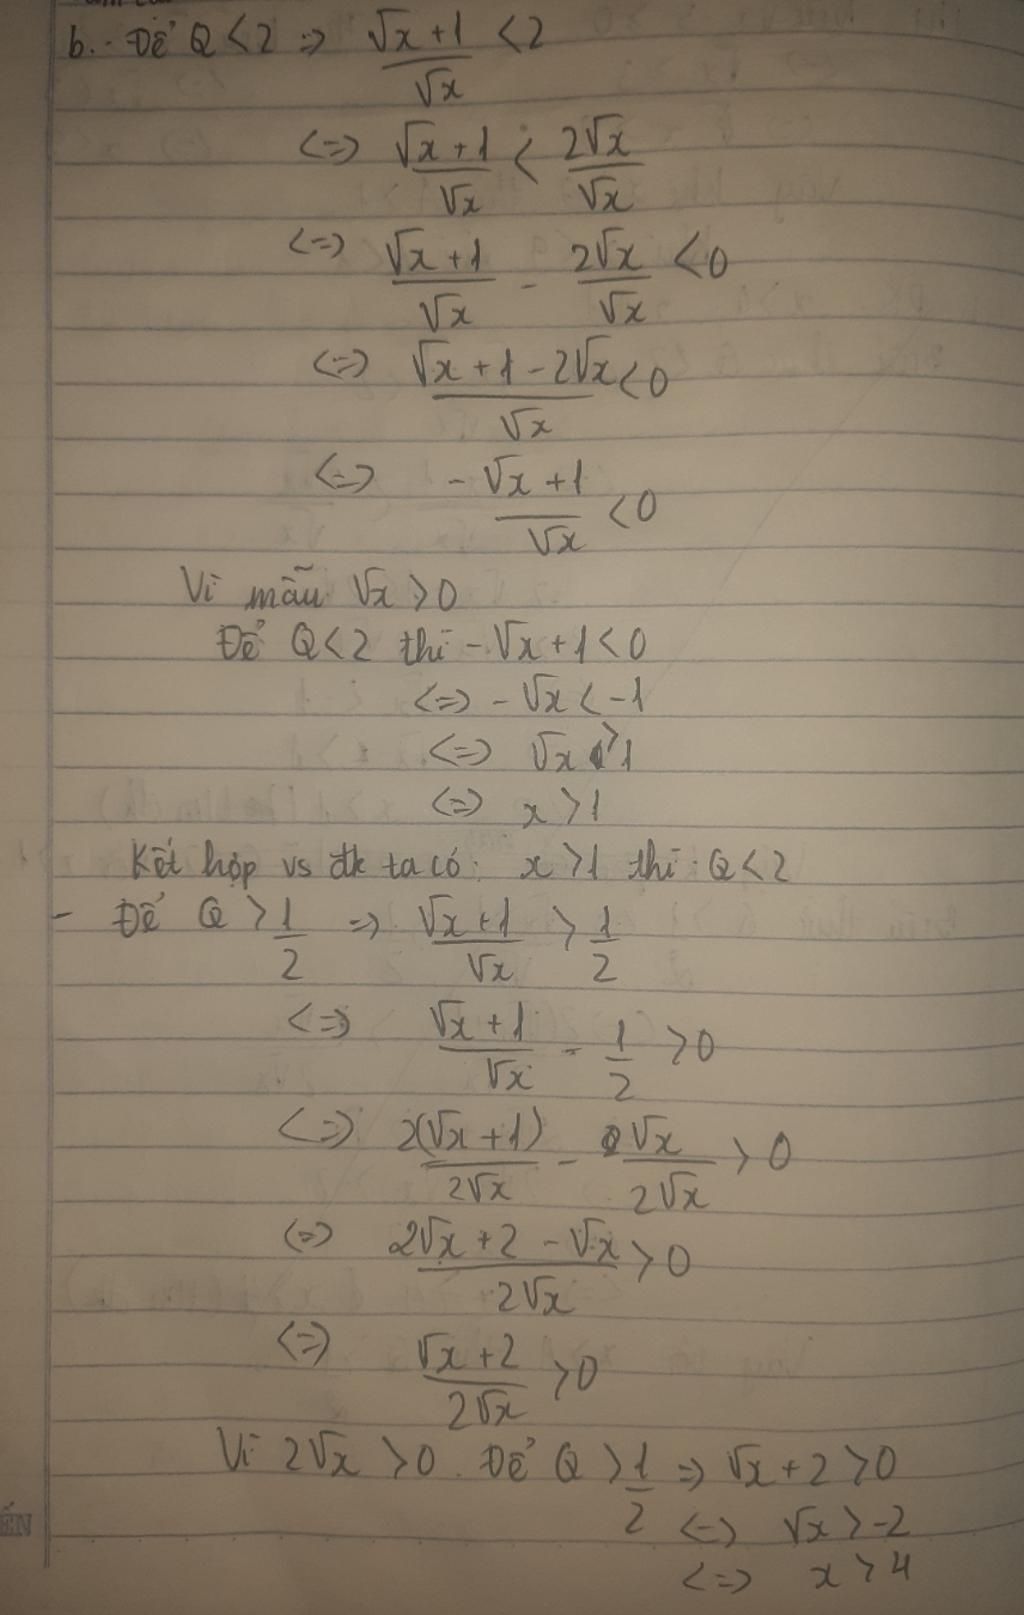 b. - Để Q < 2 => (√x + 1)/√x < 2
<=> (√x + 1)/√x < 2√x/√x
<=> (√x + 1)/√x - 2√x/√x < 0
<=> (√x + 1 - 2√x)/√x < 0
<=> (-√x + 1)/√x < 0
Vì mẫu √x > 0
Để Q < 2 thì -√x + 1 < 0
<=> -√x < -1
<=> √x > 1
<=> x > 1
Kết hợp vs đk ta có: x > 1 thì Q < 2
- Để Q > 1/2 => (√x + 1)/√x > 1/2
<=> (√x + 1)/√x - 1/2 > 0
<=> 2(√x + 1)/2√x - √x/2√x > 0
<=> (2√x + 2 - √x)/2√x > 0
<=> (√x + 2)/2√x > 0
Vì 2√x > 0. Để Q > 1/2 => √x + 2 > 0
<=> √x > -2
<=> x > 4